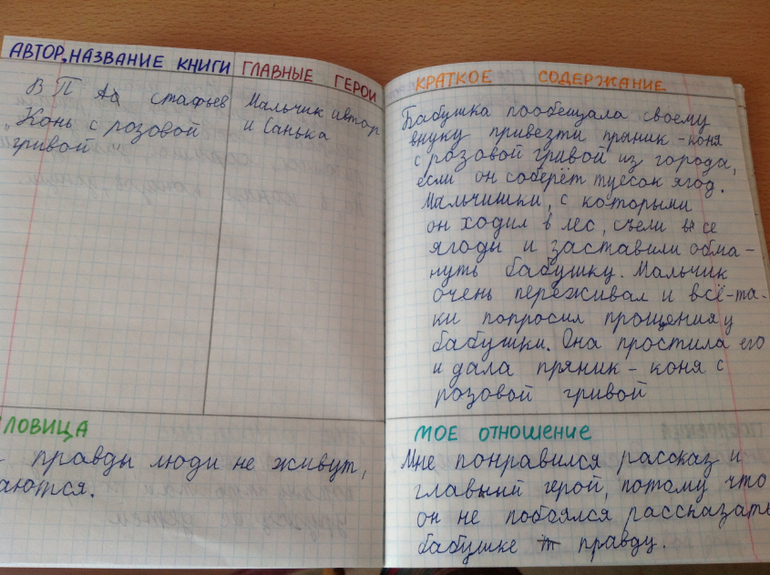 АВТОР, НАЗВАНИЕ КНИГИ
В П Астафьев
"Конь с розовой
гривой"
ГЛАВНЫЕ ГЕРОИ
Мальчик автор
и Санька
КРАТКОЕ СОДЕРЖАНИЕ
Бабушка пообещала своему
внуку привезти пряник-коня
с розовой гривой из города,
если он соберёт туесок ягод.
Мальчишки, с которыми
он ходил в лес, съели все
ягоды и заставили обма-
нуть бабушку. Мальчик
очень переживал и всё-та-
ки попросил прощения у
бабушки. Она простила его
и дала пряник - коня с
розовой гривой
ЛОВИЦА
правды люди не живут,
аются.
МОЕ ОТНОШЕНИЕ
Мне понравился рассказ и
главный герой, потому что
он не побоялся рассказать
бабушке правду.